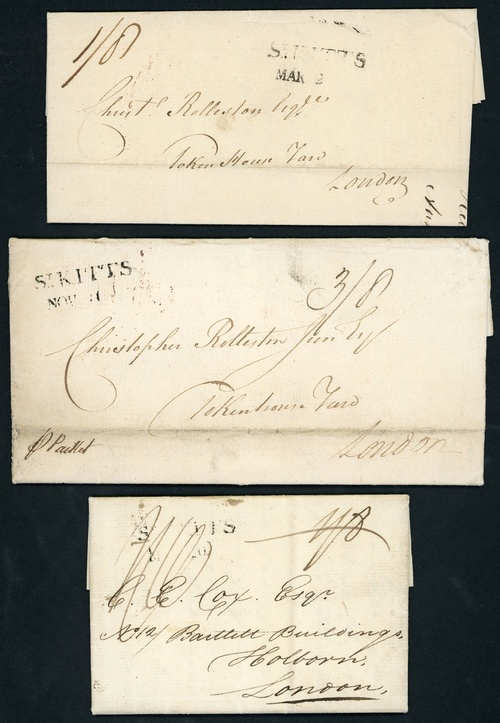 1/8
ST KITTS
MAR 2
Christr. Rolleston Esqre
Token House Yard
London
ST KITTS
NOV
3/8
Christopher Rolleston Junr Esqr
Tokenhouse Yard
London
P Packet
TTS
1/8
C. E. Cox. Esqr.
No 12/ Bartlett Buildings,
Holborn,
London,